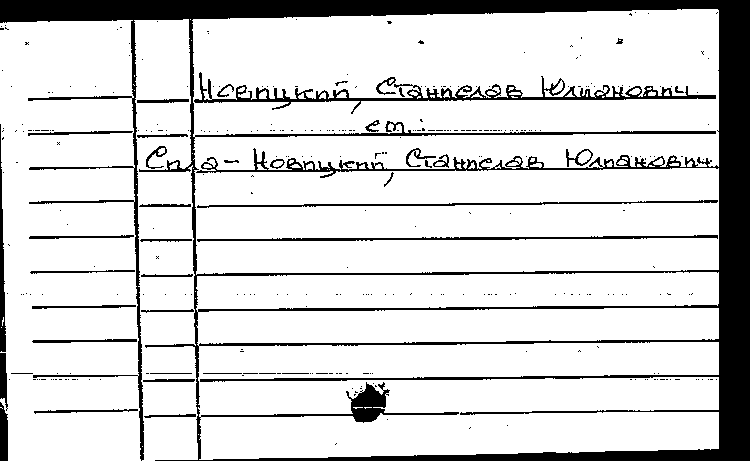 Новицкий, Станислав Юлианович
см.:
Сила-Новицкий, Станислав Юлианович.